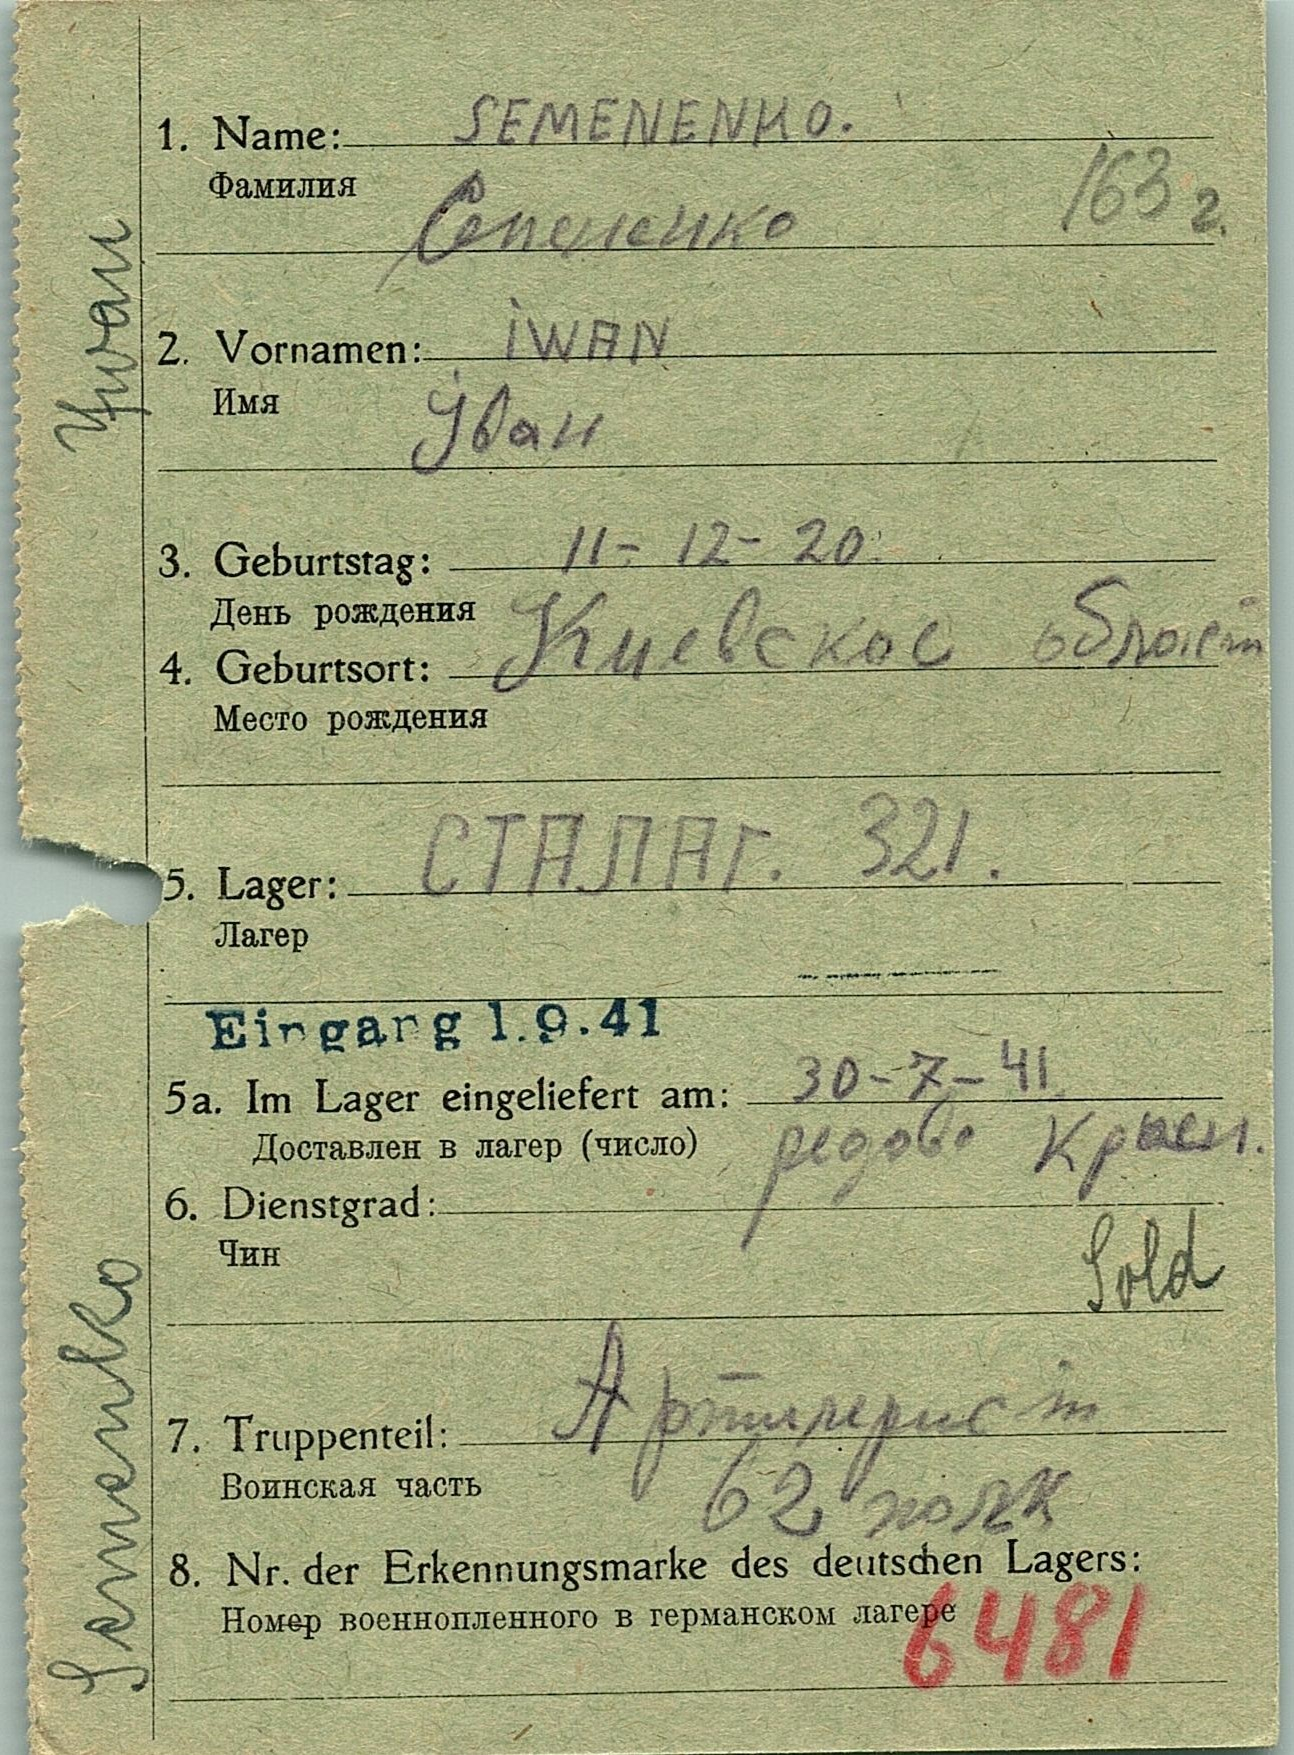 1. Name: SEMENENKO.
Фамилия
Семененко 163 г.
2. Vornamen: iWAN
Имя
Iван
3. Geburtstag: 11- 12- 20.
День рождения
4. Geburtsort: Киевское област
Место рождения
5. Lager: СТАЛАГ. 321.
Лагер
Eingang 1.9.41
5a. Im Lager eingeliefert am: 30-7-41
Доставлен в лагер (число)
редово Красн.
6. Dienstgrad:
Чин
Sold
7. Truppenteil: Артилерист
Воинская часть
62 полк
8. Nr. der Erkennungsmarke des deutschen Lagers:
Номер военнопленного в германском лагере
6481
Semenenko Iwan